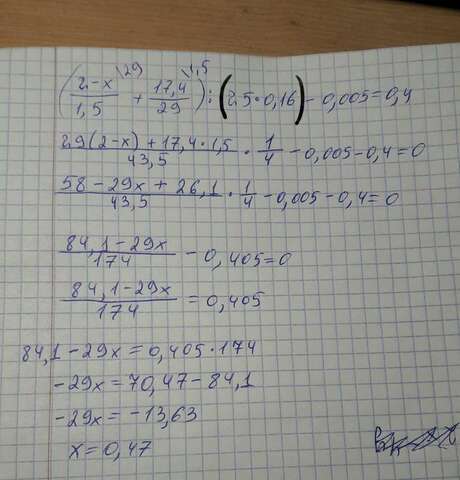 \29 \1,5
(2-x/1,5 + 17,4/29) : (2,5·0,16) - 0,005 = 0,4
29(2-x)+17,4·1,5/43,5 · 1/4 - 0,005 - 0,4 = 0
58-29x+26,1/43,5 · 1/4 - 0,005 - 0,4 = 0
84,1-29x/174 - 0,405 = 0
84,1-29x/174 = 0,405
84,1-29x = 0,405·174
-29x = 70,47-84,1
-29x = -13,63
x = 0,47